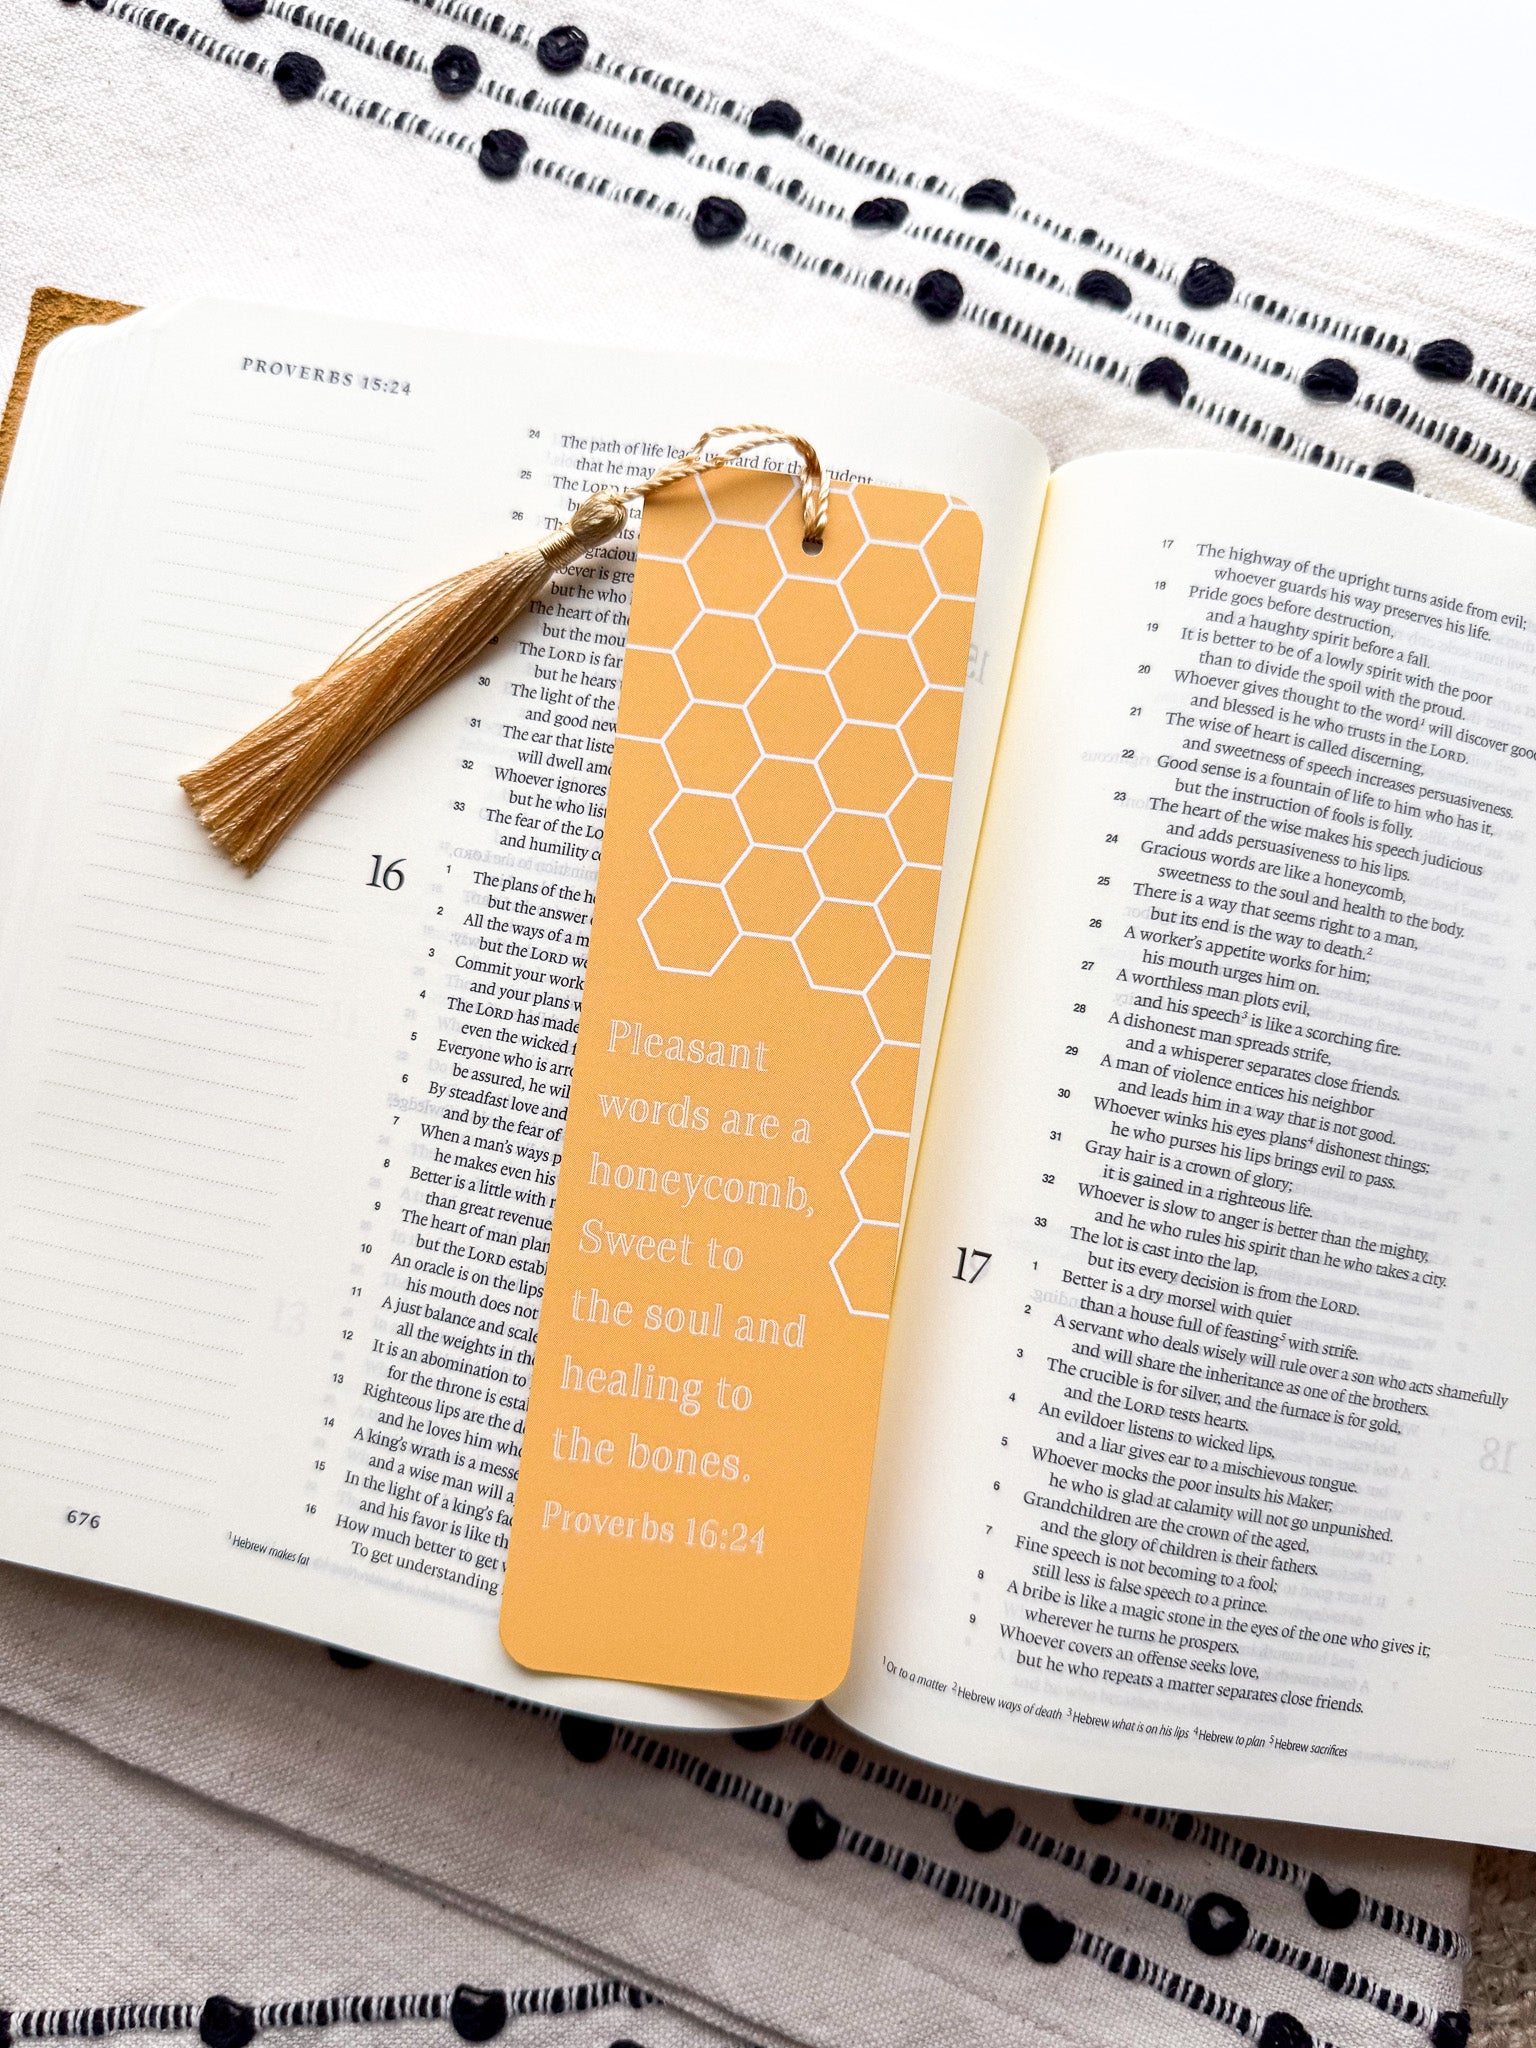 PROVERBS 15:24
24 The path of life leads upward for the prudent,
that he may
25 The LORD
26
gracious
but he who
The heart of the
but the mou
The LORD is far
but he hears
30 The light of the
and good new
31 The ear that liste
will dwell amo
32 Whoever ignores
but he who list
33 The fear of the LO
and humility co
16 1 The plans of the he
but the answer
2 All the ways of a m
but the LORD we
3 Commit your work
and your plans w
4 The LORD has made
even the wicked f
5 Everyone who is arro
be assured, he will
6 By steadfast love and
and by the fear of
7 When a man's ways p
he makes even his
8 Better is a little with r
than great revenue
9 The heart of man plan
but the LORD establ
10 An oracle is on the lips
his mouth does not
11 A just balance and scale
all the weights in the
12 It is an abomination to
for the throne is estal
13 Righteous lips are the de
and he loves him who
14 A king's wrath is a messe
and a wise man will a
15 In the light of a king's fac
and his favor is like th
16 How much better to get w
To get understanding
1 Hebrew makes fat
676
Pleasant
words are a
honeycomb,
Sweet to
the soul and
healing to
the bones.
Proverbs 16:24
17 The highway of the upright turns aside from evil;
whoever guards his way preserves his life.
18 Pride goes before destruction,
and a haughty spirit before a fall.
19 It is better to be of a lowly spirit with the poor
than to divide the spoil with the proud.
20 Whoever gives thought to the word1 will discover good
and blessed is he who trusts in the LORD.
21 The wise of heart is called discerning,
and sweetness of speech increases persuasiveness.
22 Good sense is a fountain of life to him who has it,
but the instruction of fools is folly.
23 The heart of the wise makes his speech judicious
and adds persuasiveness to his lips.
24 Gracious words are like a honeycomb,
sweetness to the soul and health to the body.
25 There is a way that seems right to a man,
but its end is the way to death.2
26 A worker's appetite works for him;
his mouth urges him on.
27 A worthless man plots evil,
and his speech3 is like a scorching fire.
28 A dishonest man spreads strife,
and a whisperer separates close friends.
29 A man of violence entices his neighbor
and leads him in a way that is not good.
30 Whoever winks his eyes plans4 dishonest things;
he who purses his lips brings evil to pass.
31 Gray hair is a crown of glory;
it is gained in a righteous life.
32 Whoever is slow to anger is better than the mighty,
and he who rules his spirit than he who takes a city.
33 The lot is cast into the lap,
but its every decision is from the LORD.
17 1 Better is a dry morsel with quiet
than a house full of feasting5 with strife.
2 A servant who deals wisely will rule over a son who acts shamefully
and will share the inheritance as one of the brothers.
3 The crucible is for silver, and the furnace is for gold,
and the LORD tests hearts.
4 An evildoer listens to wicked lips,
and a liar gives ear to a mischievous tongue.
5 Whoever mocks the poor insults his Maker;
he who is glad at calamity will not go unpunished.
6 Grandchildren are the crown of the aged,
and the glory of children is their fathers.
7 Fine speech is not becoming to a fool;
still less is false speech to a prince.
8 A bribe is like a magic stone in the eyes of the one who gives it;
wherever he turns he prospers.
9 Whoever covers an offense seeks love,
but he who repeats a matter separates close friends.
1 Or to a matter 2 Hebrew ways of death 3 Hebrew what is on his lips 4 Hebrew to plan 5 Hebrew sacrifices